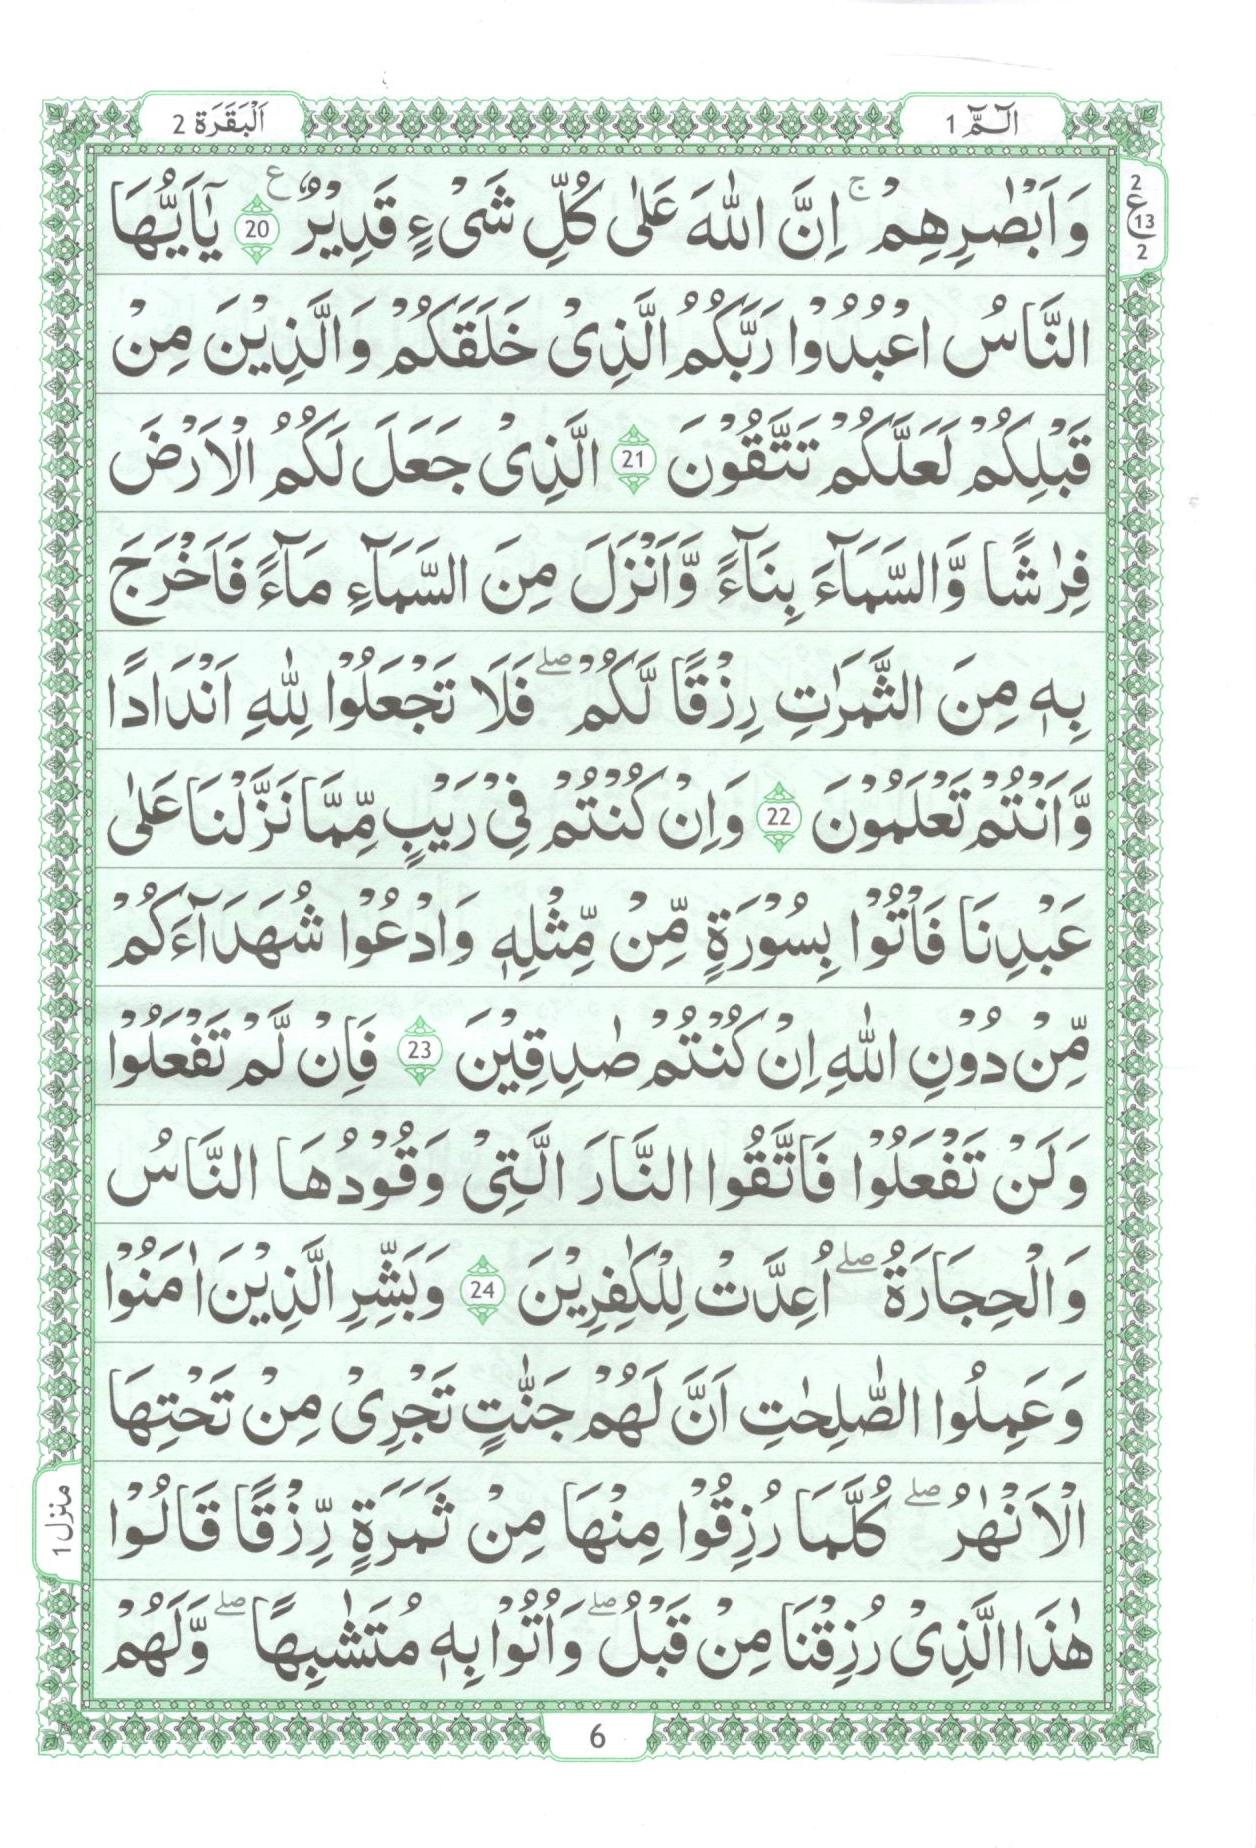 الٓمّٓ 1
اَلْبَقَرَة 2
2
ع
13
2
وَ اَبْصٰرِهِمْ ۚ اِنَّ اللّٰهَ عَلٰى كُلِّ شَیْءٍ قَدِیْرٌ ﴿20﴾ ع یٰۤاَیُّهَا
النَّاسُ اعْبُدُوْا رَبَّكُمُ الَّذِیْ خَلَقَكُمْ وَ الَّذِیْنَ مِنْ
قَبْلِكُمْ لَعَلَّكُمْ تَتَّقُوْنَ ﴿21﴾ الَّذِیْ جَعَلَ لَكُمُ الْاَرْضَ
فِرٰشًا وَّ السَّمَآءَ بِنَآءً وَّ اَنْزَلَ مِنَ السَّمَآءِ مَآءً فَاَخْرَجَ
بِهٖ مِنَ الثَّمَرٰتِ رِزْقًا لَّكُمْ ۖ فَلَا تَجْعَلُوْا لِلّٰهِ اَنْدَادًا
وَّ اَنْتُمْ تَعْلَمُوْنَ ﴿22﴾ وَ اِنْ كُنْتُمْ فِیْ رَیْبٍ مِّمَّا نَزَّلْنَا عَلٰى
عَبْدِنَا فَاْتُوْا بِسُوْرَةٍ مِّنْ مِّثْلِهٖ وَ ادْعُوْا شُهَدَآءَكُمْ
مِّنْ دُوْنِ اللّٰهِ اِنْ كُنْتُمْ صٰدِقِیْنَ ﴿23﴾ فَاِنْ لَّمْ تَفْعَلُوْا
وَ لَنْ تَفْعَلُوْا فَاتَّقُوا النَّارَ الَّتِیْ وَ قُوْدُهَا النَّاسُ
وَ الْحِجَارَةُ ۖ اُعِدَّتْ لِلْكٰفِرِیْنَ ﴿24﴾ وَ بَشِّرِ الَّذِیْنَ اٰمَنُوْا
وَ عَمِلُوا الصّٰلِحٰتِ اَنَّ لَهُمْ جَنّٰتٍ تَجْرِیْ مِنْ تَحْتِهَا
الْاَنْهٰرُ ۖ كُلَّمَا رُزِقُوْا مِنْهَا مِنْ ثَمَرَةٍ رِّزْقًا قَالُوْا
هٰذَا الَّذِیْ رُزِقْنَا مِنْ قَبْلُ ۖ وَ اُتُوْا بِهٖ مُتَشٰبِهًا ۖ وَّ لَهُمْ
منزل 1
6